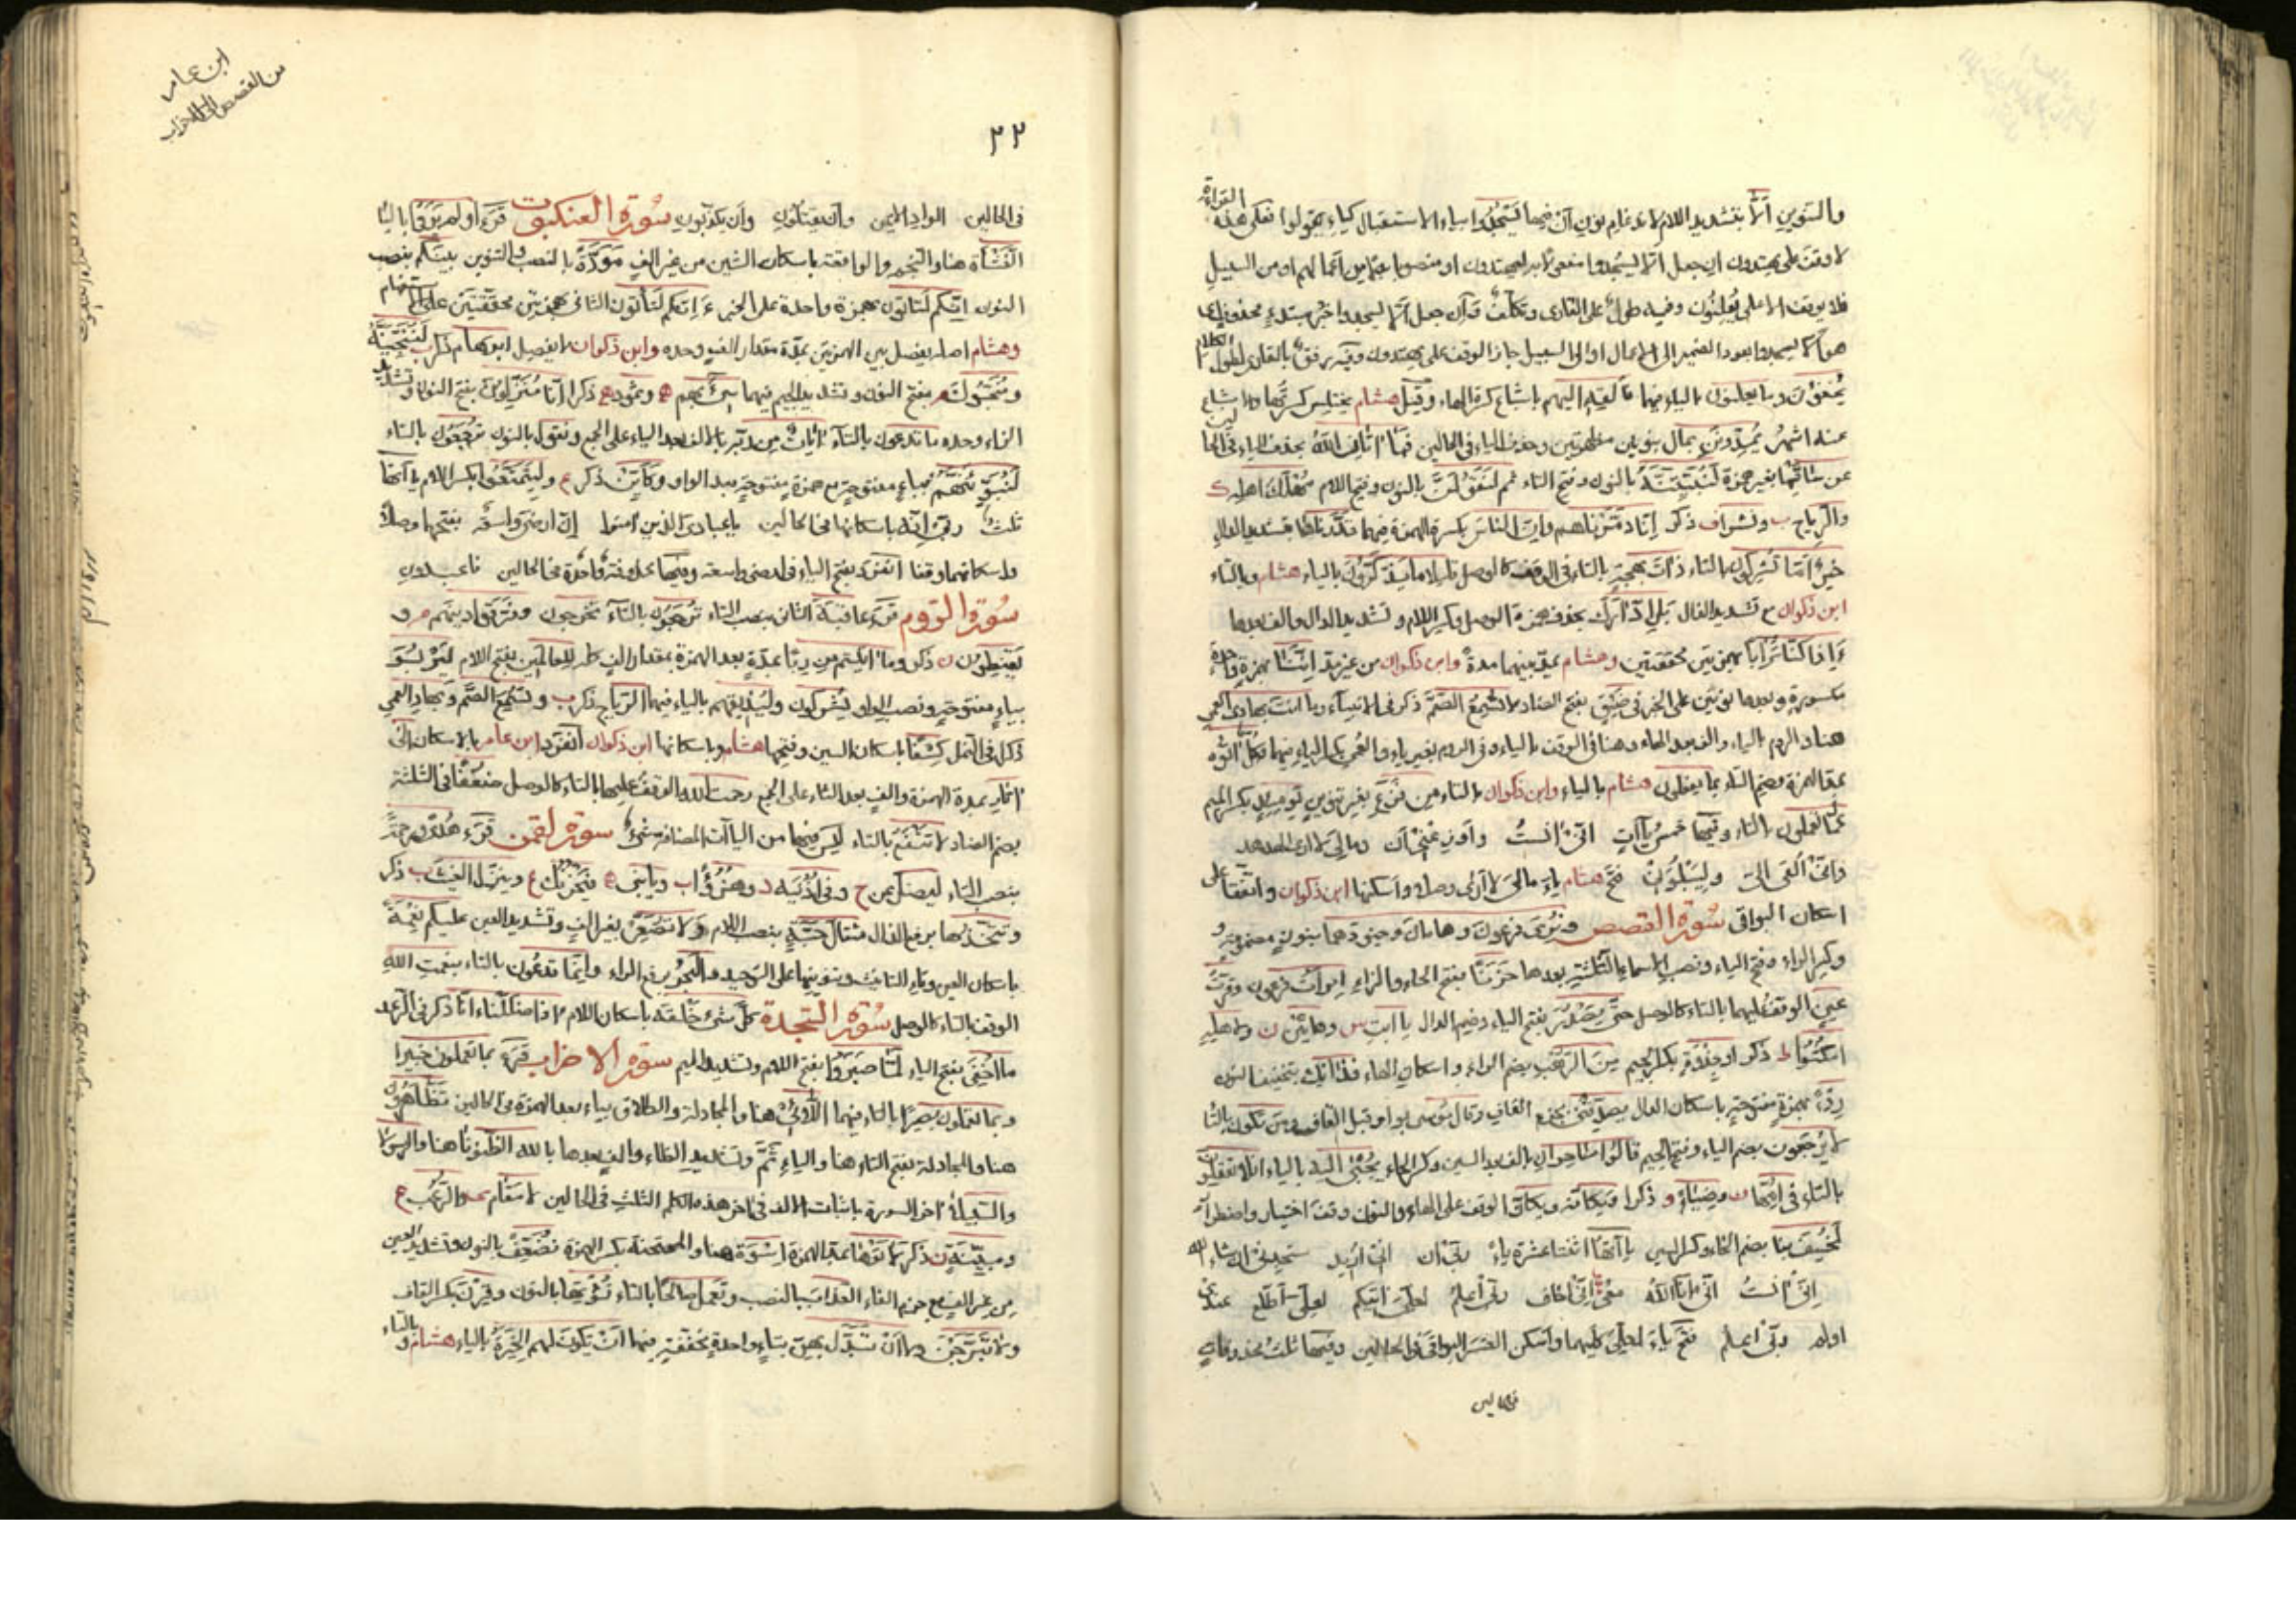 والتنوين ألّا بتشديد اللام لادغام نون أن فيها يسجدوا بياء الاستقبال كياء يقولوا فعلى هذه القراءة
لا وقف على يهتدون ان جعل ألا يسجدوا مفعولا به ليهتدون او منصوبا بدلا من اعمالهم او من السبيل
فلا يوقف الا على يعلنون وفيه طول على القارئ وتكلف وان جعل ألا يسجدوا خبر مبتدء محذوف اي
هو ألا يسجدوا بعود الضمير الى الاعمال او الى السبيل جاز الوقف على يهتدون وفيه رفق بالقارئ لطول الكلام
يخفون وما يعلنون بالياء فيهما فألقه اليهم باشباع كسرة الهاء وقيل هشام يختلس كسرتها والاشباع
عنه اشهر أتمدونن بمال بنونين مظهرتين وحذف الياء في الحالين فما آتان الله بحذف الياء في الحالين
عن ساقيها بغير همزة لنبيتنه بالنون وفتح التاء ثم لنقولن بالنون وفتح اللام مهلك اهله ك
والرياح ب ونشرا ف ذكر إنا دمرناهم وإن الناس بكسرة الهمزة فيهما قدرناها بتشديد الدال
خير أما تشركون بالتاء ذات بهجة بالتاء في الوقف كالوصل قليلا ما يذكرون بالياء هشام وبالتاء
ابن ذكوان مع تشديد الذال بل ادّارك بحذف همزة الوصل وكسر اللام وتشديد الدال والف بعدها
ءاذا كنا ترابا بهمزتين محققتين وهشام يمد بينهما مدة وابن ذكوان من غير مد إننا بهمزة واحدة
مكسورة وبعدها نونين على الخبر في ضيق بفتح الضاد لا تسمع الصم ذكر في الانبياء وما انت بهادي العمي
هنا والروم بالباء والف بعد الهاء وهنا في الوقف بالياء وفي الروم بغير ياء والعمي بكسر الياء فيهما وكل آتوه
بمد الهمزة وضم التاء بما يفعلون هشام بالياء وابن ذكوان بالتاء من فزع بغير تنوين يومئذ بكسر الميم
عما تعملون بالتاء وفيها خمس ياآت اني آنست وأوزعني أن ومالي لا ارى الهدهد
واني القي الي وليبلوني فتح هشام ياء مالي لا أرى وصلا واسكنها ابن ذكوان واتفقا على
اسكان البواقي سورة القصص ونري فرعون وهامان وجنودهما بنون مضمومة و
وكسر الراء وفتح الياء ونصب الاسماء الثلثة بعدها حزنا بفتح الحاء والزاء امرأت فرعون وقرت
عين الوقف عليهما بالتاء كالوصل حتى يصدر بفتح الياء وضم الدال يا ابت س وهاتين ن ولاهله
امكثوا ط ذكر او جذوة بكسر الجيم من الرهب بضم الراء واسكان الهاء فذانك بتخفيف النون
ردءا بهمزة مفتوحة باسكان الدال يصدقني بجزم القاف وقال موسى بواو قبل القاف ومن تكون بالتاء
لا يرجعون بضم الياء وفتح الجيم قالوا ساحران بالف بعد السين وكسر الحاء يجبى اليه بالياء افلا تعقلون
بالتاء في امها ن وضياء و ذكرا ويكأنه ويكأن الوقف على الهاء والنون وقف اختيار واضطرار
لخسف بنا بضم الخاء وكسر السين ياآتها اثنتا عشرة ياء ربي أن اني أريد ستجدني ان شاء الله
إني آنست اني انا الله معي إني اخاف ربي أعلم لعلي آتيكم لعلي أطلع عندي
اولم ربي أعلم فتح ياء لعلي كليهما واسكن العشر البواقي في الحالين وفيها ثلث محذوفات
في الحالين
ابن عامر
من القصص الى الاحزاب
٢٢
في الحالين الواد الايمن وأن يقتلون وأن يكذبون سورة العنكبوت قرء اولم يروا بالياء
النشأة هنا والنجم والواقعة باسكان الشين من غير الف مودة بالنصب والتنوين بينكم بنصب
النون إنكم لتأتون بهمزة واحدة على الخبر ء إنكم لتأتون الثاني بهمزتين محققتين على الاستفهام
وهشام اصله يفصل بين الهمزتين بمدة مقدار الف وحده وابن ذكوان لا يفصل ابرهام ذكر ب لننجينه
ومنجوك بفتح النون وتشديد الجيم فيهما سيء بهم ه وثمودا ه ذكرا إنا منزلون بفتح النون وتشديد
الزاء وحده ما تدعون بالتاء آيات من ربه بالالف بعد الياء على الجمع ونقول بالنون ترجعون بالتاء
لنبوئنهم بباء مفتوحة مع همزة مفتوحة بعد الواو وكأين ذكر ع وليتمتعوا بكسر اللام ياآتها
ثلث ربي إنه باسكانها في الحالين يا عبادي الذين آمنوا إن ارضي واسعة بفتحها وصلا
واسكانها وقفا انفرد بفتح الياء في ارضي واسعة وفيها محذوفة واحدة في الحالين فاعبدون
سورة الروم قرء عاقبة الثاني بنصب التاء ترجعون بالتاء تخرجون وفرقوا دينهم م و
يقنطون ن ذكر وما آتيتم من ربا بمدة بعد الهمزة بمقدار الف للعالمين بفتح اللام ليربو
بياء مفتوحة ونصب الواو يشركون وليذيقهم بالياء فيهما الرياح ذكر ب ولا تسمع الصم وبهاد العمي
ذكر في النمل كسفا باسكان السين وفتحها هشام وباسكانها ابن ذكوان انفرد ابن عامر بالاسكان الى
آثار بمدة الهمزة والف بعد الثاء على الجمع رحمت الله الوقف عليها بالتاء كالوصل ضعفا في الثلثة
بضم الضاد لا تنفع بالتاء ليس فيها من الياآت المضافة شيء سورة لقمن قرء هدى ورحمة
بنصب التاء ليضل عن ح وفي اذنيه د وهزؤا ب ويا بني ه فيحزنك ع وينزل الغيث ب ذكر
ويتخذها برفع الذال مثقال حبة بنصب اللام ولا تصعر بغير الف وتشديد العين عليكم نعمة
باسكان العين وتاء التانيث وتنوينها على التوحيد والبحر برفع الراء وانما تدعون بالتاء بنعمت الله
الوقف بالتاء كالوصل سورة السجدة كل شيء خلقه باسكان اللام ءاذا ضللنا ءانا ذكر في الرعد
ما اخفي بفتح الياء لما صبروا بفتح اللام وتشديد الميم سورة الاحزاب قرء بما تعملون خبيرا
وبما تعملون بصيرا بالتاء فيهما اللائي هنا والمجادلة والطلاق بياء بعد الهمزة في الحالين تظاهرون
هنا والمجادلة بفتح التاء هنا والياء ثم وتشديد الظاء والف بعدها بالله الظنونا هنا والرسولا
والسبيلا آخر السورة باثبات الالف في آخر هذه الكلم الثلث في الحالين لا مقام بفتح والرعب ع
ومبينة ن ذكر لآتوها بمد الهمزة اسوة هنا والممتحنة بكسر الهمزة نضعف بالنون وتشديد العين
من غير الف مع جزم الفاء العذاب بالنصب وتعمل صالحا بالتاء نؤتها بالنون وقرن بكسر القاف
ولا تبرجن ولا أن تبدل بهن بتاء واحدة مخففة فيهما أن يكون لهم الخيرة بالياء هشام وبالتاء